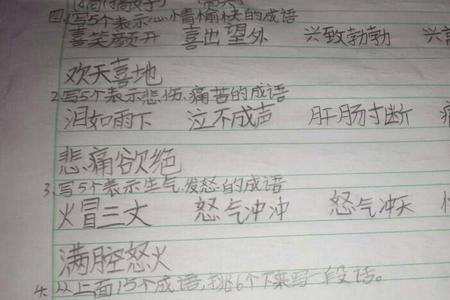 写5个表示心情愉快的成语
喜笑颜开 喜出望外 兴致勃勃
欢天喜地
2.写5个表示悲伤、痛苦的成语
泪如雨下 泣不成声 肝肠寸断
悲痛欲绝
3、写5个表示生气、发怒的成语
火冒三丈 怒气冲冲 怒气冲天
满腔怒火
4、从上面15个成语,挑6个下来写一段话。